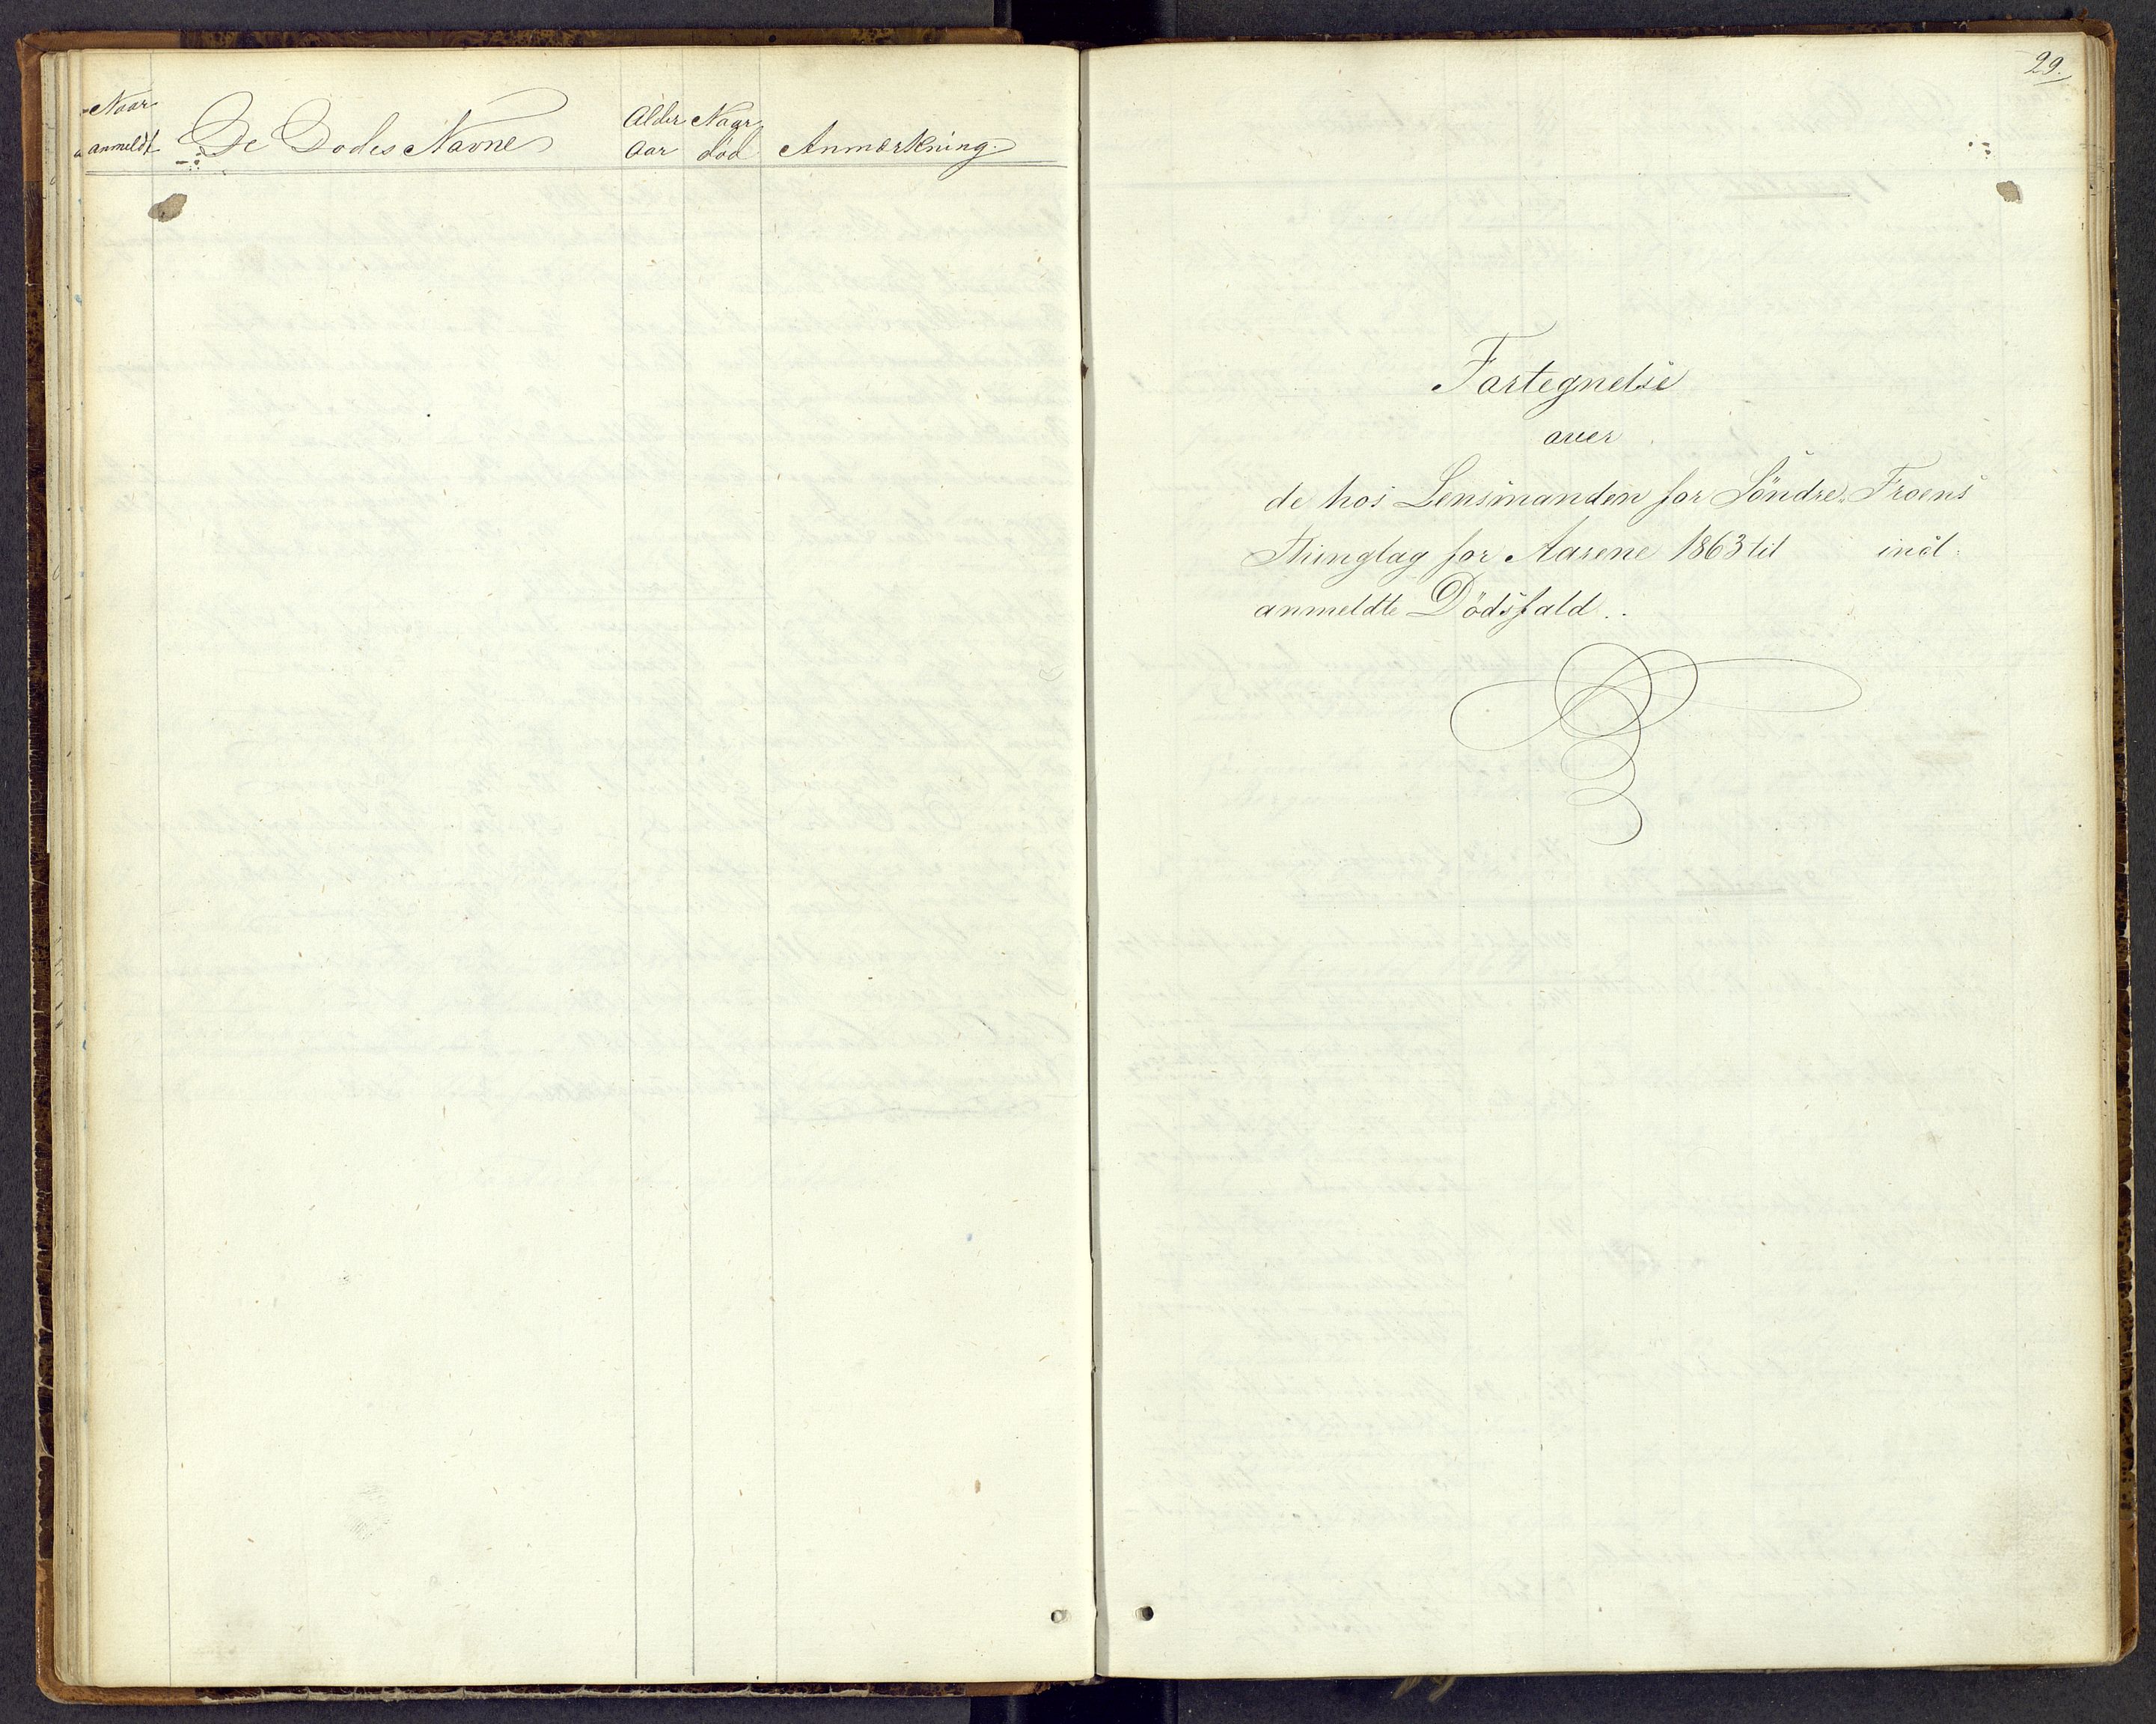 Naar
anmeldt
De Dødes Navne
Alder
Aar
Naar
død
Anmærkning.
29.
Fortegnelse
over
de hos Lensmanden for Söndre Froens
Thinglag for Aarene 1863 til incl.
anmeldte Dödsfald.